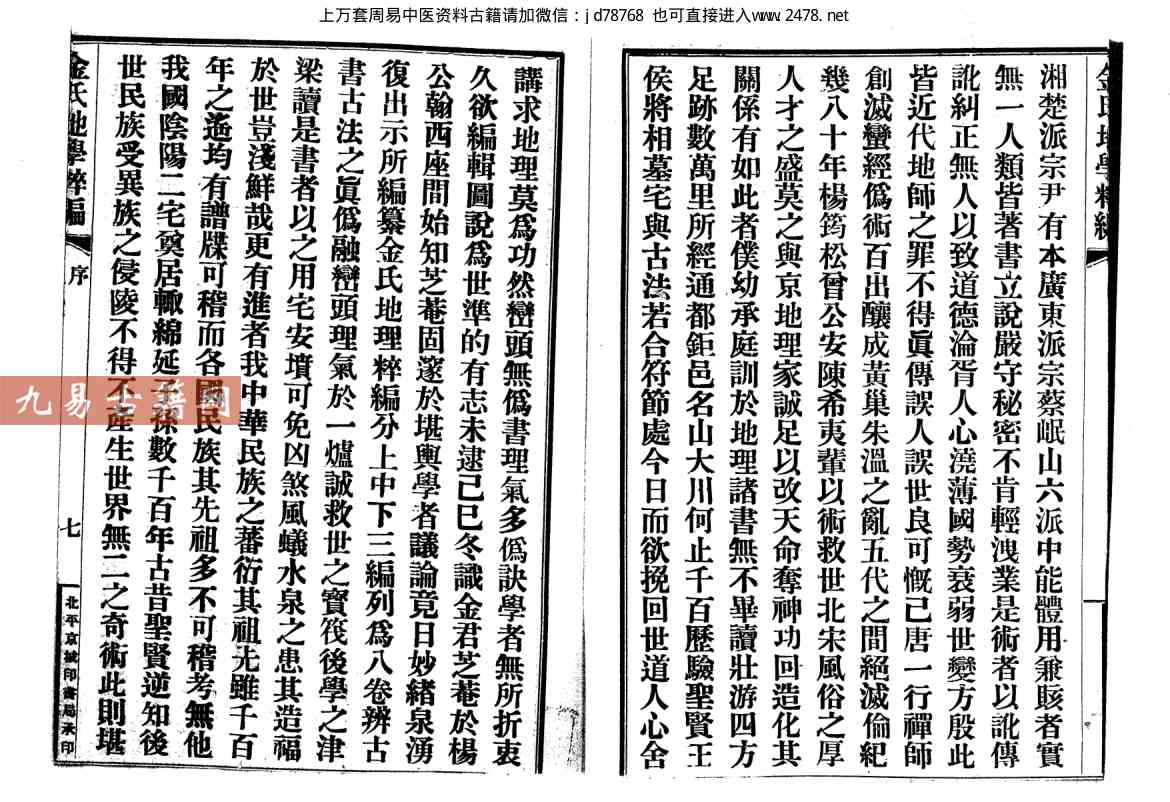 上万套周易中医资料古籍请加微信：jd78768 也可直接进入www.2478.net
湘楚派宗尹有本廣東派宗蔡岷山六派中能體用兼賅者實
無一人類皆著書立說嚴守秘密不肯輕洩業是術者以訛傳
訛糾正無人以致道德淪胥人心澆薄國勢衰弱世變方殷此
皆近代地師之罪不得眞傳誤人誤世良可慨已唐一行禪師
創滅蠻經僞術百出釀成黃巢朱溫之亂五代之間絕滅倫紀
幾八十年楊筠松曾公安陳希夷輩以術救世北宋風俗之厚
人才之盛莫之與京地理家誠足以改天命奪神功回造化其
關係有如此者僕幼承庭訓於地理諸書無不畢讀壯游四方
足跡數萬里所經通都鉅邑名山大川何止千百歷驗聖賢王
侯將相墓宅與古法若合符節處今日而欲挽回世道人心舍
講求地理莫爲功然巒頭無僞書理氣多僞訣學者無所折衷
久欲編輯圖說爲世準的有志未逮己巳冬識金君芝菴於楊
公翰西座間始知芝菴固邃於堪輿學者議論竟日妙緒泉湧
復出示所編纂金氏地理粹編分上中下三編列爲八卷辨古
書古法之眞僞融巒頭理氣於一爐誠救世之寶筏後學之津
梁讀是書者以之用宅安墳可免凶煞風蟻水泉之患其造福
於世豈淺鮮哉更有進者我中華民族之蕃衍其祖先雖千百
年之遙均有譜牒可稽而各國民族其先祖多不可稽考無他
我國陰陽二宅奠居輙綿延子孫數千百年古昔聖賢逆知後
世民族受異族之侵陵不得不產生世界無二之奇術此則堪
金氏地學粹編
序
七
北平京城印書局承印
九易古籍网